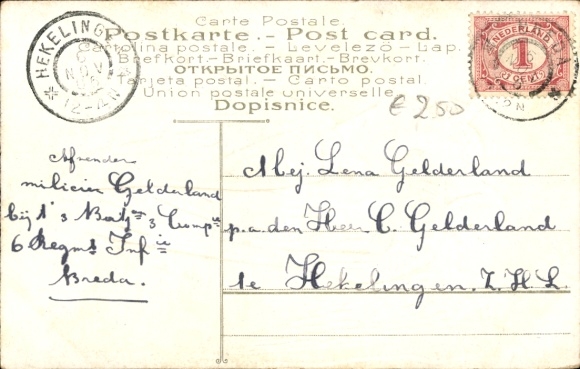 Carte Postale.
Postkarte. - Post card.
Cartolina postale. - Levelező - Lap.
Brefkort. - Briefkaart. - Brevkort.
ОТКРЫТОЕ ПИСЬМО.
Tarjeta postal. - Carto postal.
Union postale universelle.
Dopisnice.
HEKELINGEN
6 NOV
12-4N
NEDERLAND
1
CENT
€ 2.50
Afzender
milicien Gelderland
bij 't 3 Bat. 3 Comp ie
6 Regmt Inf ie
Breda.
Mej. Lena Gelderland
p.a. den Heer C. Gelderland
te Hekelingen. Z.H.L.